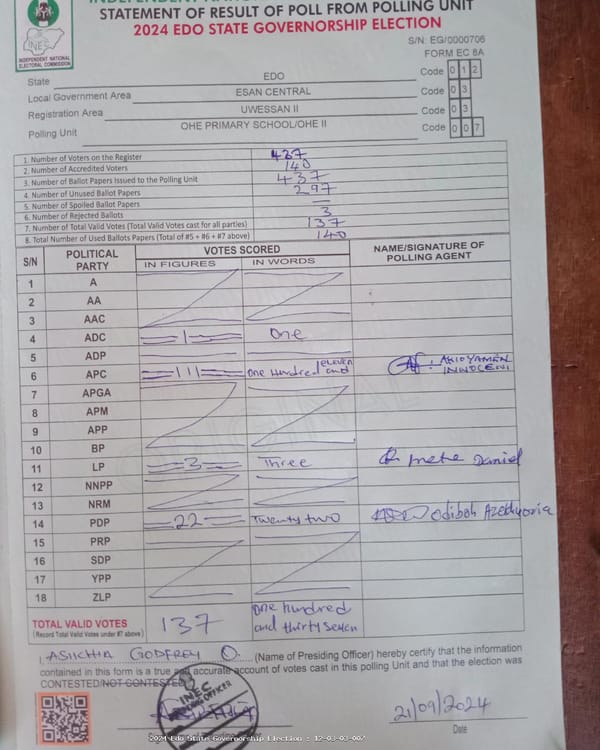 STATEMENT OF RESULT OF POLL FROM POLLING UNIT
2024 EDO STATE GOVERNORSHIP ELECTION
INEC
INDEPENDENT NATIONAL ELECTORAL COMMISSION
S/N: EG/0000706
FORM EC 8A
State EDO Code 0 1 2
Local Government Area ESAN CENTRAL Code 0 3
Registration Area UWESSAN II Code 0 3
Polling Unit OHE PRIMARY SCHOOL/OHE II Code 0 0 7
1. Number of Voters on the Register 437
2. Number of Accredited Voters 140
3. Number of Ballot Papers Issued to the Polling Unit 437
4. Number of Unused Ballot Papers 297
5. Number of Spoiled Ballot Papers —
6. Number of Rejected Ballots 3
7. Number of Total Valid Votes (Total Valid Votes cast for all parties) 137
8. Total Number of Used Ballots Papers (Total of #5 + #6 + #7 above) 140
S/N POLITICAL PARTY VOTES SCORED NAME/SIGNATURE OF POLLING AGENT
IN FIGURES IN WORDS
1 A
2 AA
3 AAC
4 ADC 1 One
5 ADP
6 APC 111 One Hundred and eleven INNOCENT
7 APGA
8 APM
9 APP
10 BP
11 LP 3 Three Daniel
12 NNPP
13 NRM
14 PDP 22 Twenty two Odiboh
15 PRP
16 SDP
17 YPP
18 ZLP
TOTAL VALID VOTES 137 One hundred and thirty seven
(Record Total Valid Votes under #7 above)
I, GODFREY O. (Name of Presiding Officer) hereby certify that the information
contained in this form is a true and accurate account of votes cast in this polling Unit and that the election was
CONTESTED/NOT CONTESTED
INEC
21/09/2024
Date
2024 Edo State Governorship Election : 12-03-03-007